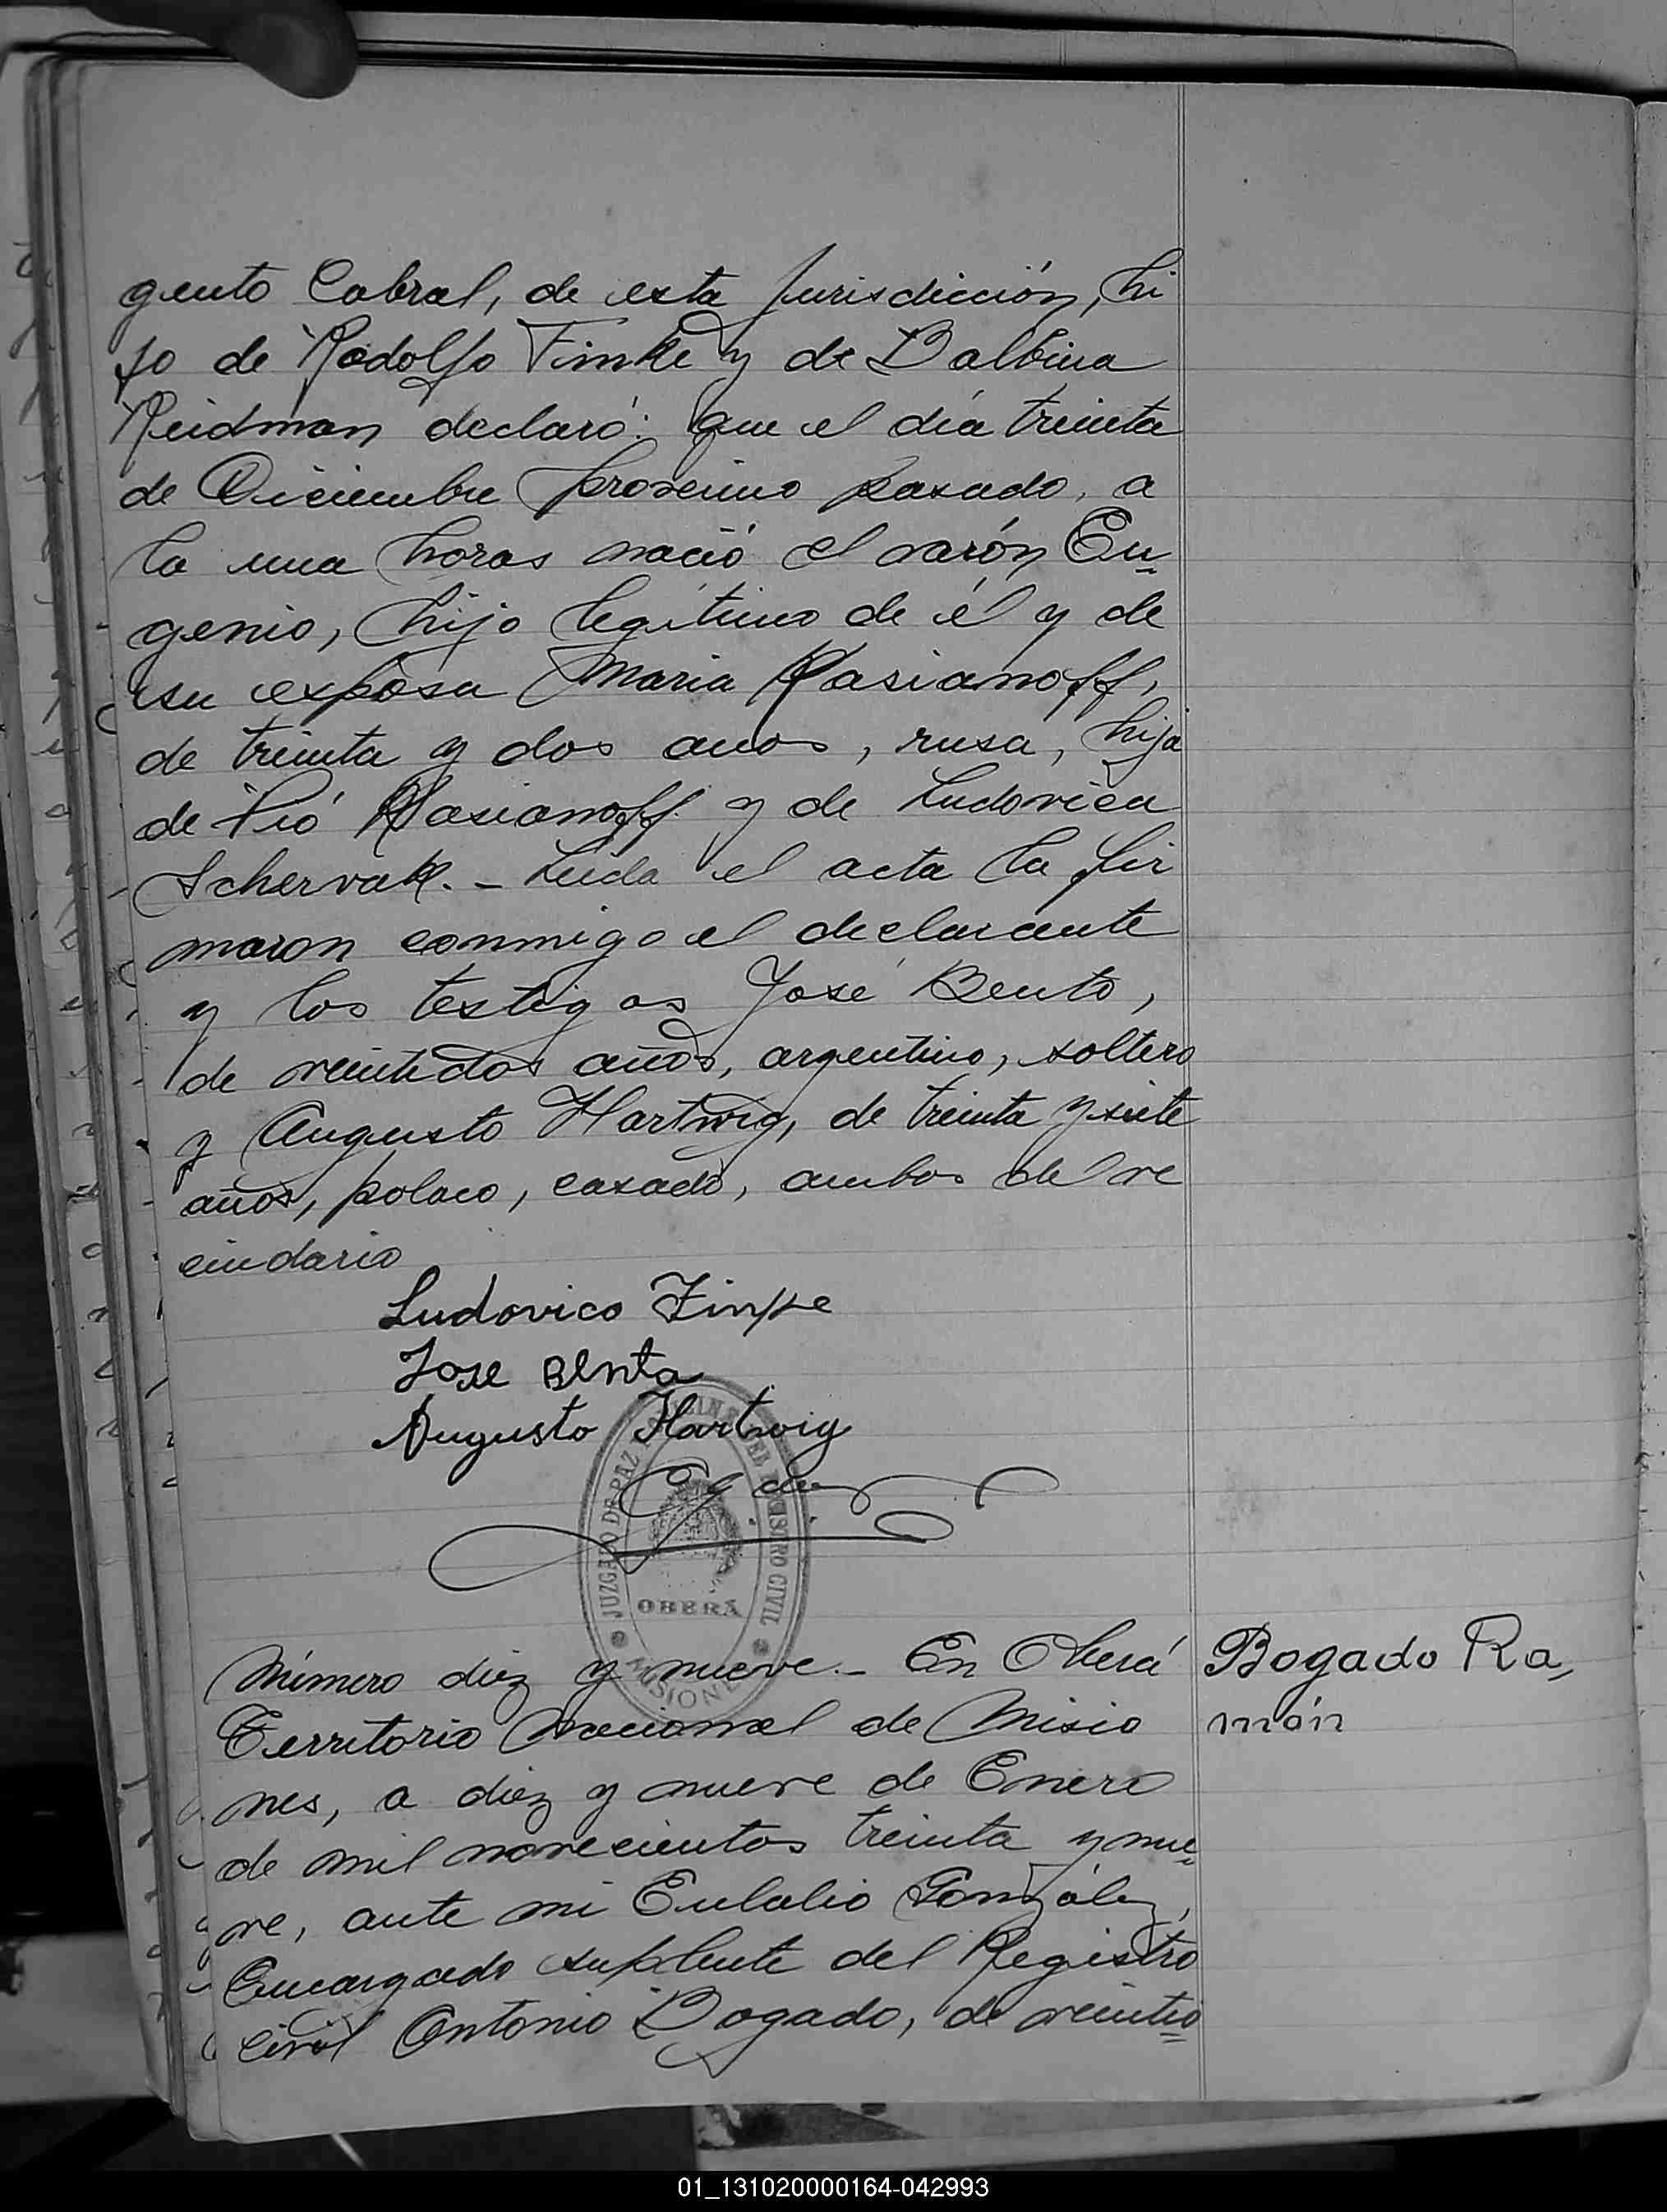 gento Cabral, de esta jurisdicción, hi
jo de Rodolfo Finke y de Balbina
Reidman declaró: que el día treinta
de Diciembre proximo pasado, a
la una horas nació el varón Eu=
genio, hijo legítimo de él y de
su esposa Maria Kasianoff,
de treinta y dos años, rusa, hija
de Pió Kasianoff y de Ludovica
Schervak. - Leida el acta la fir
maron conmigo el declarante
y los testigos José Bento,
de veintidos años, argentino, soltero
y Augusto Hartwig, de treinta y siete
años, polaco, casado, ambos del ve
cindario
Ludovico Finke
Jose Bento
Augusto Hartwig
JUZGADO DE PAZ REGISTRO CIVIL
OBERÁ
MISIONES
Número diez y nueve. - En Oberá
Territorio Nacional de Misio
nes, a diez y nueve de Enero
de mil novecientos treinta y nue=
ve, ante mi Eulalio González,
Encargado suplente del Registro
Civil Antonio Bogado, de veintio=
Bogado Ra,
món
01_131020000164-042993